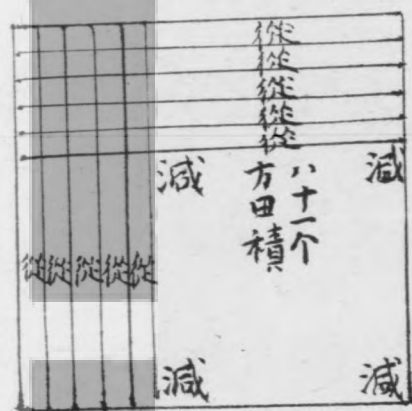 從
從
從
從
從
減
減
八十一个
方田積
從從從從從
減
減